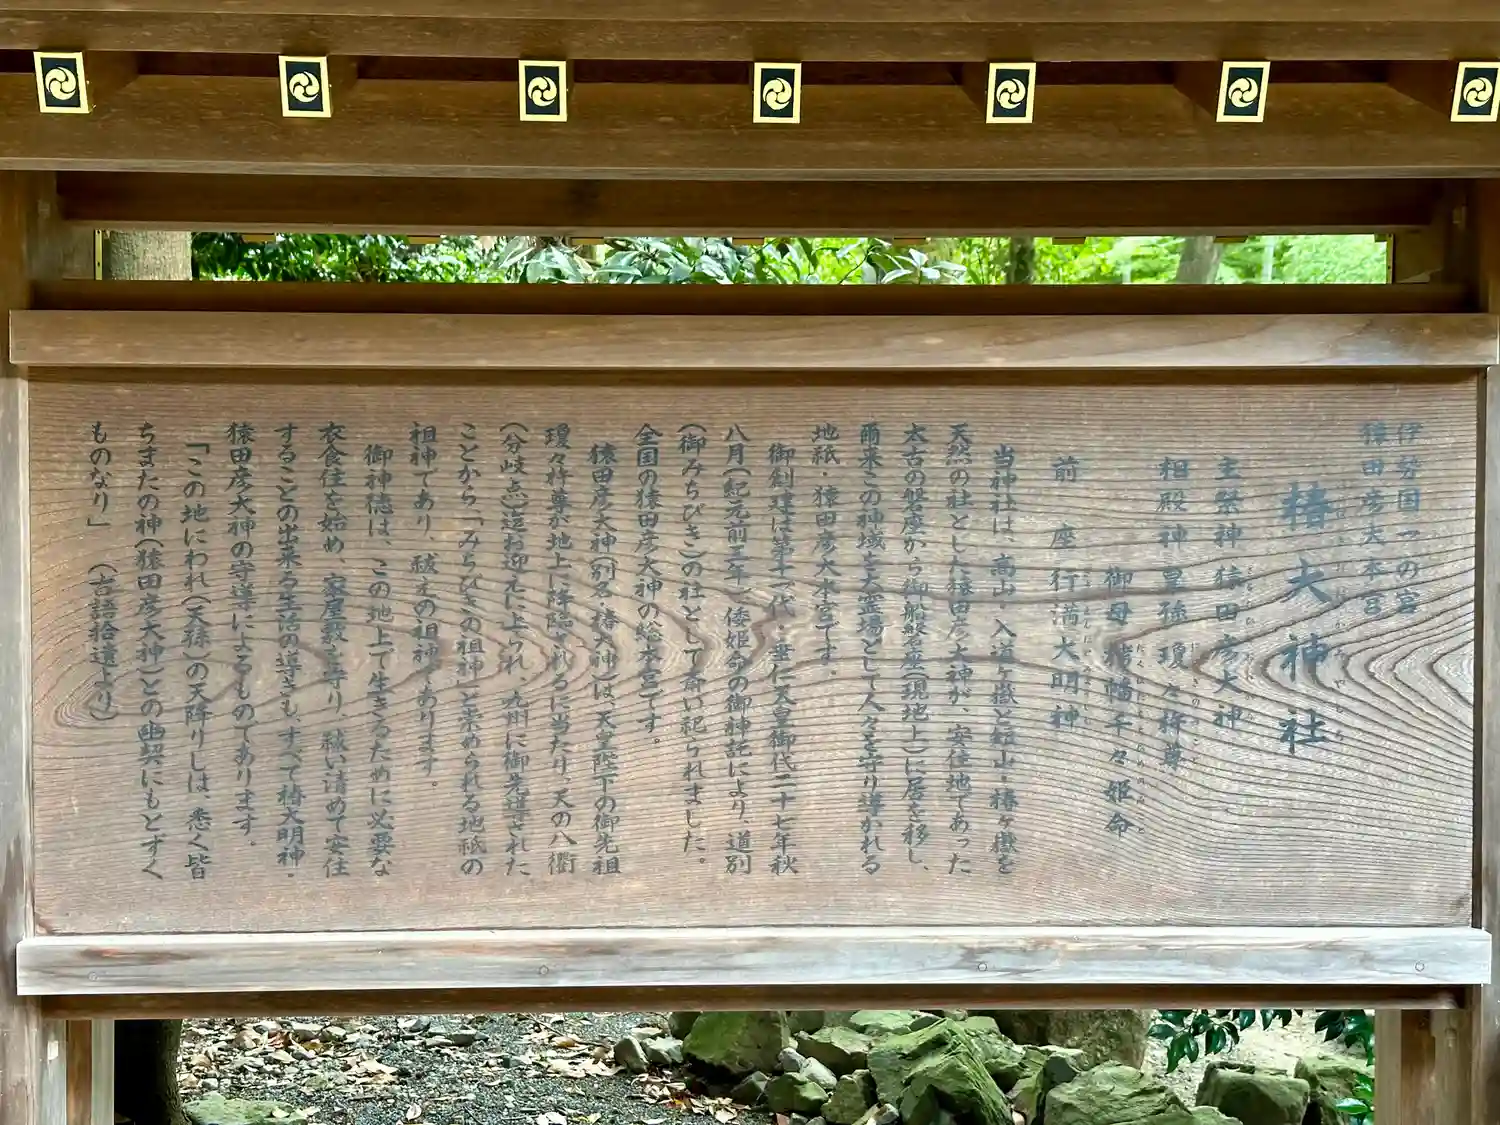 伊勢国一の宮
猿田彦大本宮
椿大神社
主祭神 猿田彦大神
相殿神 皇孫 瓊々杵尊
御母 栲幡千々姫命
前座 行満大明神
当神社は、高山・入道ヶ嶽と短山・椿ヶ嶽を
天然の社とした猿田彦大神が、安住地であった
太古の磐座から御船磐座(現地上)に居を移し、
爾来この神域を大霊場として人々を守り導かれる
地祇 猿田彦大本宮です。
御創建は第十一代・垂仁天皇御代二十七年秋
八月(紀元前三年) 倭姫命の御神託により、道別
(御みちびき)の社として斎い祀られました。
全国の猿田彦大神の総本宮です。
猿田彦大神(別名・椿大神)は、天皇陛下の御先祖
瓊々杵尊が地上に降臨されるに当たり、天の八衢
(分岐点)迄お迎えに上られ、九州に御先導された
ことから、「みちびきの祖神」と崇められる地祇の
祖神であり、祓えの祖神であります。
御神徳は、この地上で生きるために必要な
衣食住を始め、家屋敷を守り、祓い清めて安住
することの出来る生活の導きも、すべて椿大明神・
猿田彦大神の守導によるものであります。
「この地にわれ(天孫)の天降りしは、悉く皆
ちまたの神(猿田彦大神)との幽契にもとずく
ものなり」 (古語拾遺より)